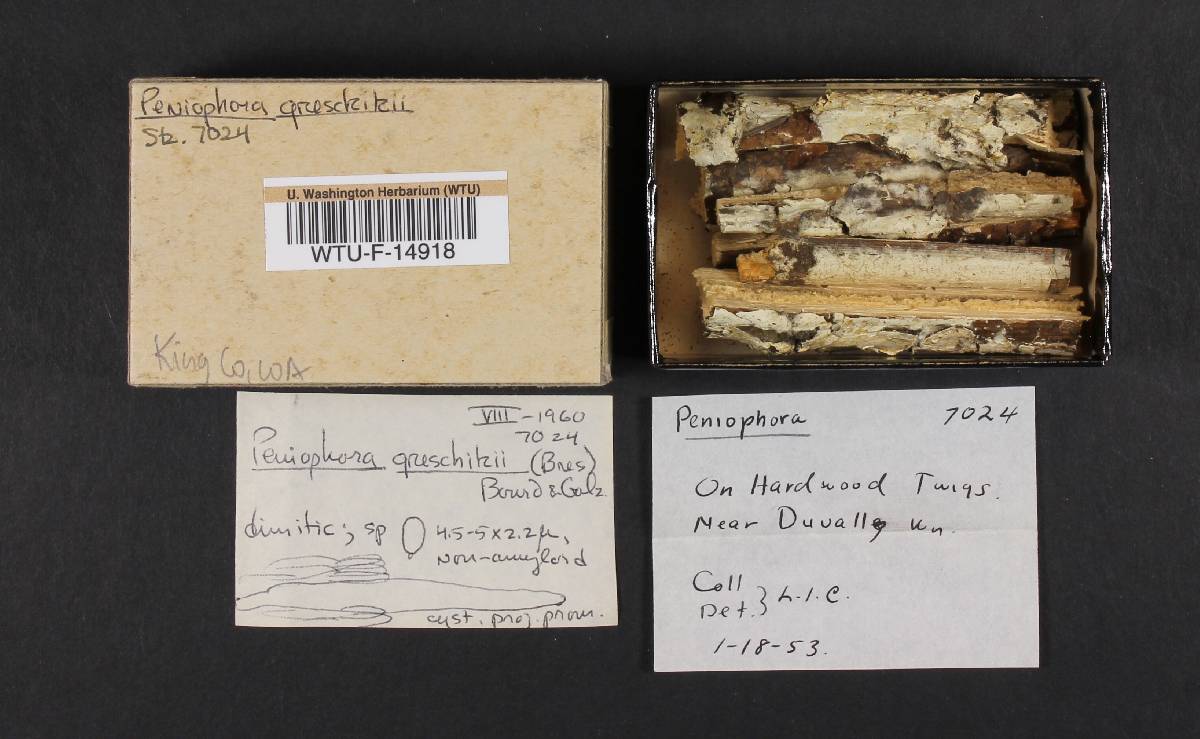 Peniophora greschikii
Stz. 7024
U. Washington Herbarium (WTU)
WTU-F-14918
King Co, WA
VIII-1960
7024
Peniophora greschikii (Bres)
Bourd & Galz.
dimitic; sp 4.5-5x2.2µ,
non-amyloid
cyst. proj. prom.
Peniophora 7024
On Hardwood Twigs.
Near Duvall, Wn.
Coll
Det. } L.I.C.
1-18-53.